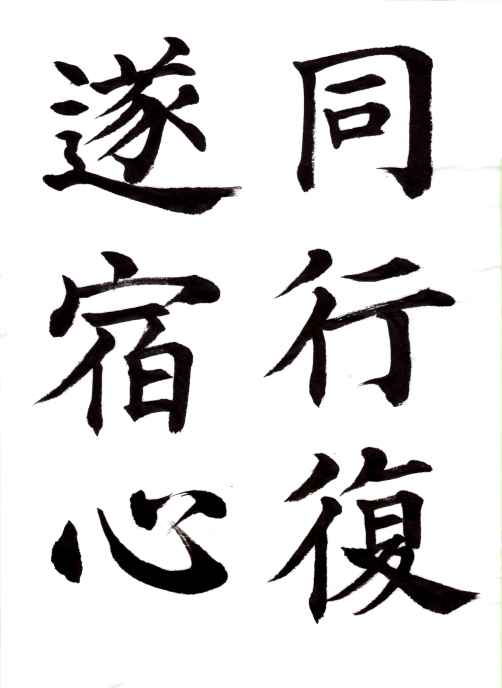 同行復
遂宿心